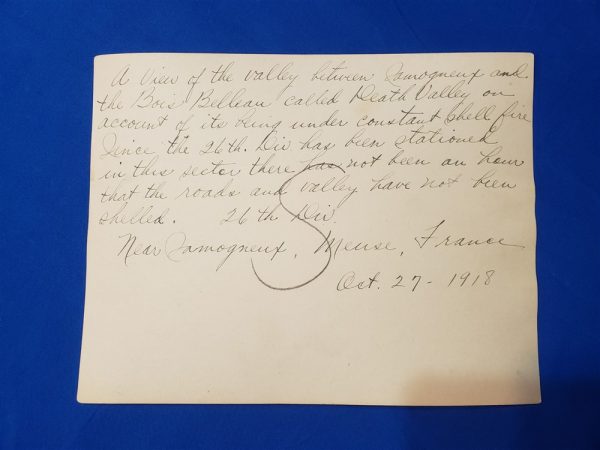 A view of the valley between Samogneux and
the Bois Belleau called Death Valley on
account of its being under constant shell fire
Since the 26th. Div has been stationed
in this sector there has not been an hour
that the roads and valley have not been
shelled. 26th Div.
Near Samogneux, Meuse, France
Oct. 27 - 1918
S